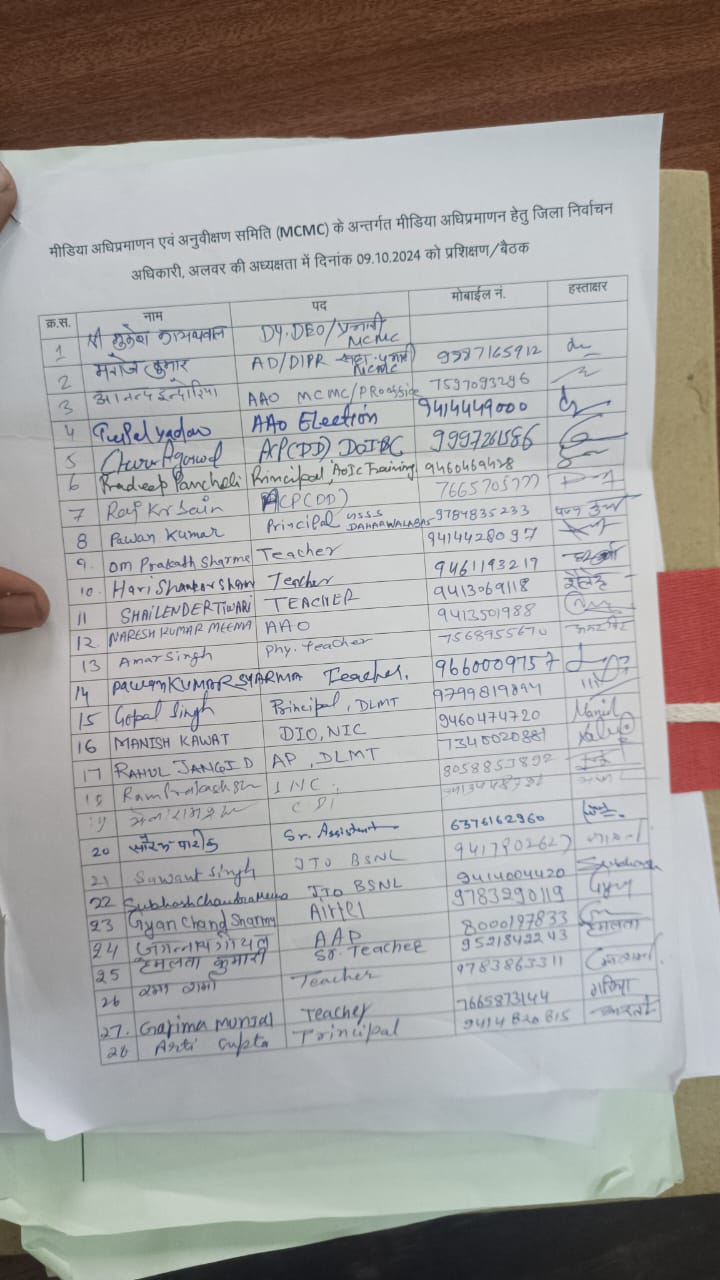 मीडिया अधिप्रमाणन एवं अनुवीक्षण समिति (MCMC) के अन्तर्गत मीडिया अधिप्रमाणन हेतु जिला निर्वाचन
अधिकारी, अलवर की अध्यक्षता में दिनांक 09.10.2024 को प्रशिक्षण/बैठक
क्र.स. नाम पद मोबाईल नं. हस्ताक्षर
1 श्री मुकेश कायथवाल DY.DEO/प्रभारी MCMC
2 मनोज कुमार AD/DIPR सहा. प्रभारी MCMC 9987165912
3 आनन्द इन्दोरिया AAO MCMC/PRoffice 7597093296
4 yadav AAO Election 9414449000
5 Charu Agarwal AP(DD) DOIBC 999726586
6 Pradeep Pancholi Principal, AoIc Training 9460469428
7 Raj Kr Jain ACP(DD) 7665705777
8 Pawan Kumar Principal GSSS 9784835233
9. Om Prakash Sharma Teacher 9414428097
10. Hari Shankar Sharma Teacher 9461193217
11 SHAILENDER TIWARI TEACHER 9413069118 शैलेंद्र
12. NARESH KUMAR MEENA AAO 9413501988
13 Amar Singh Phy. teacher 7568955670 अमरसिंह
14 PAWAN KUMAR SHARMA Teacher. 9660009757
15 Gopal Singh Principal, DLMT 9799819894
16 MANISH KAWAT DIO, NIC 9460474720 Manish
17 RAHUL JANGID AP, DLMT 7340020881
18 Ramprakash INC. 8058853892
19 CPI
20 सौरभ पारीक Sr. Assistant 6376162960
21 Sawant Singh JTO BSNL 9417902627
22 Subhash Chandra Meena JTO BSNL 9414004420 Subhash
23 Gyan Chand Sharma Airtel 9783290119 Gyan
24 जगन्नाथ गोयल AAP 8000197833
25 हेमलता कुमारी Sr. Teacher 9521842243 हेमलता
26 शर्मा Teacher 9783863311
27. Garima Munjal Teacher 7665873144 गरिमा
28 Arti Gupta Principal 9414820815 आरती